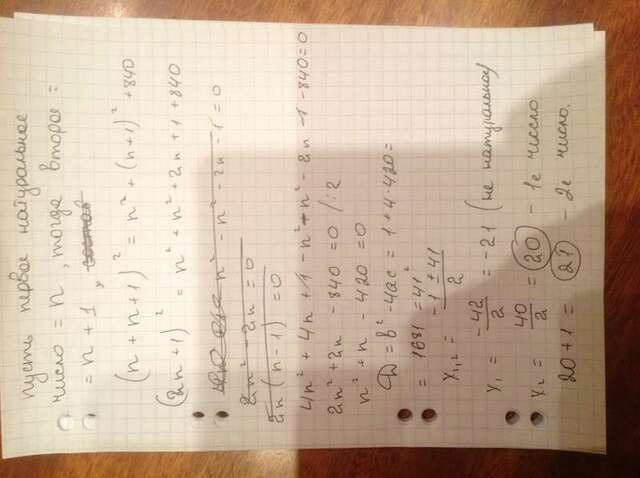 пусть первое натуральное
число = n, тогда второе =
= n + 1,
(n + n + 1)² = n² + (n+1)² + 840
(2n + 1)² = n² + n² + 2n + 1 + 840
n² - n² - 2n - 1 = 0
2n² - 2n = 0
2n (n - 1) = 0
4n² + 4n + 1 - n² - n² - 2n - 1 - 840 = 0
2n² + 2n - 840 = 0 /:2
n² + n - 420 = 0
D = b² - 4ac = 1 + 4·420 =
= 1681 = 41²
x₁,₂ = -1 ± 41 / 2
x₁ = -42 / 2 = -21 (не натуральное)
x₂ = 40 / 2 = 20 - 1е число
20 + 1 = 21 - 2е число.